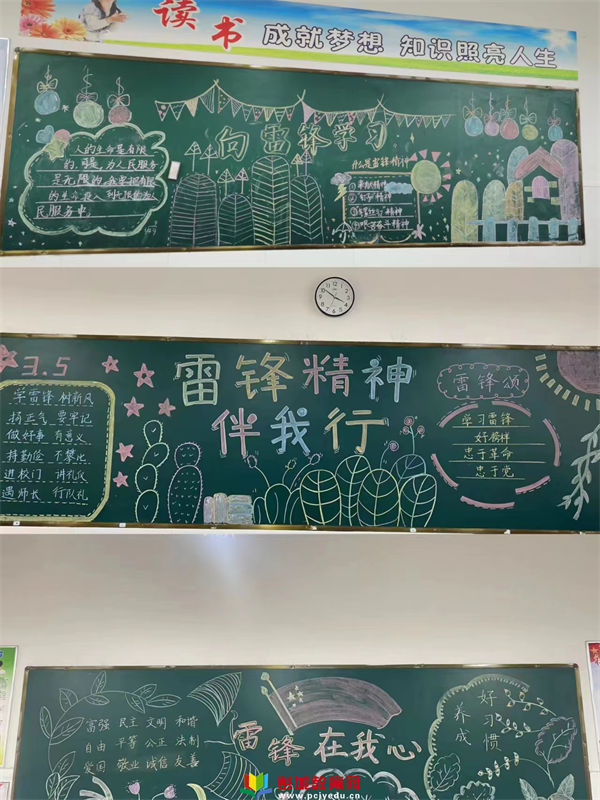 读书 成就梦想 知识照亮人生
向雷锋学习
人的生命是有限
的,可是,为人民服务
是无限的,我要把有限
的生命投入到无限的为人
民服务中。
什么是雷锋精神
①奉献精神
②钉子精神
3.5
学雷锋 树新风
扬正气 要牢记
做好事 有意义
持勤俭 不攀比
进校门 讲礼仪
遇师长 行队礼
雷锋精神
伴我行
雷锋颂
学习雷锋
好榜样
忠于革命
忠于党
富强 民主 文明 和谐
自由 平等 公正 法制
爱国 敬业 诚信 友善
雷锋在我心
养成
好习惯
www.pcjyedu.cn